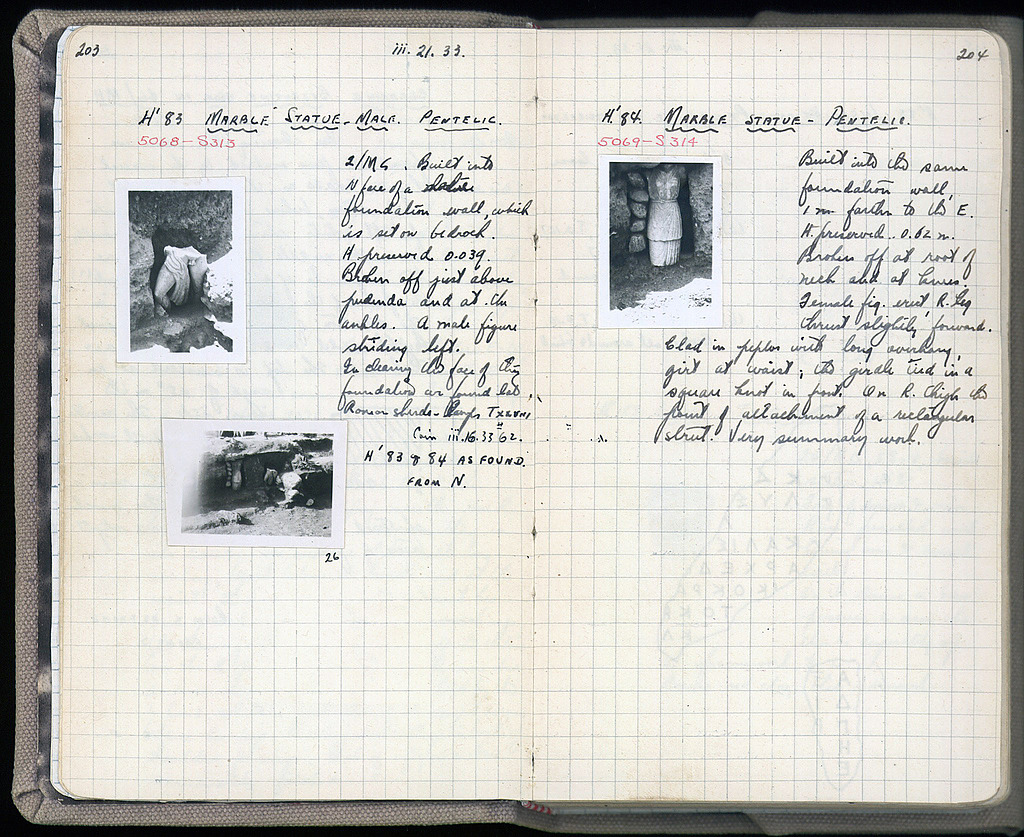 203
iii. 21. 33.
H' 83 MARBLE STATUE - MALE. PENTELIC.
5068 - S313
2/ΜΣ. Built into
N face of a
foundation wall, which
is set on bedrock.
H preserved 0.039.
Broken off just above
pudenda and at the
ankles. A male figure
striding left.
In clearing the face of this
foundation we found late
Roman sherds -
Coin iii.16.33 62.
H' 83 & 84 AS FOUND.
FROM N.
26
204
H' 84. MARBLE STATUE - PENTELIC.
5069 - S 314
Built into the same
foundation wall,
1 m farther to the E.
H. preserved. 0.62 m.
Broken off at root of
neck and at knees.
Female fig. erect, R. leg
thrust slightly forward.
Clad in peplos with long overhang,
girt at waist; the girdle tied in a
square knot in front. On R. thigh the
point of attachment of a rectangular
strut. Very summary work.